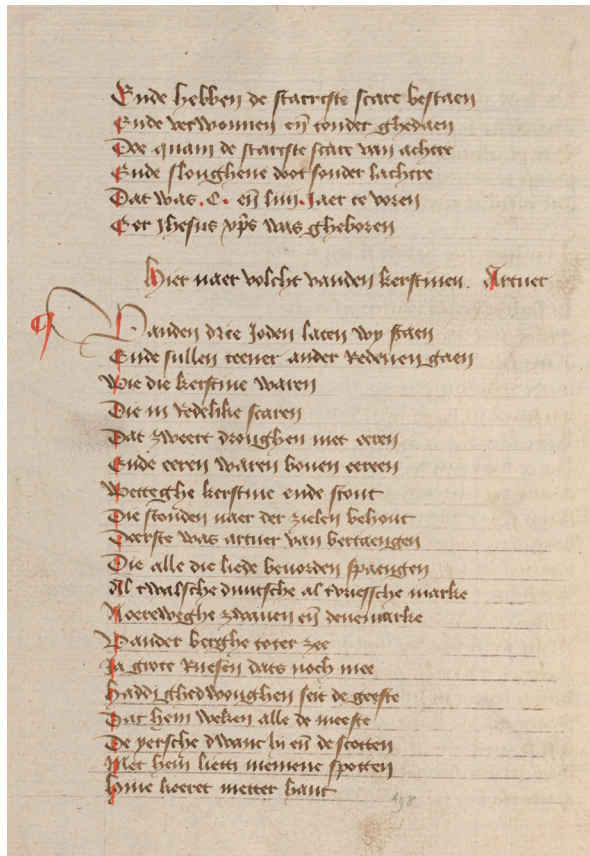 Ende hebben de starcste scare bestaen
Ende verwonnen en̄ tonder ghedaen
Doe quam de starcste scare van achtre
Ende sloughene doot sonder lachtre
Dat was .C. en̄ liiij. Jaer te voren
Eer Jhesus xp̄s was gheboren
Hier naer volcht vanden kerstinen. Artuer
Vanden drie Joden laten wy staen
Ende sullen teener ander Redenen gaen
Wie die kerstine waren
Die in Redelike scaren
Dat zweert droughen met eeren
Ende eeren waren boven eereen
Wetteghe kerstine ende stout
Die stonden naer der zielen behout
Deerste was artuer van bertaengen
Die alle die liede bevorden spaengen
Al twalsche duutsche al tvriessche marke
Noereweghe zwauen en̄ denemarke
Vander berghe toter zee
Ja grote Ruesen dats noch mee
Haddi ghedwonghen seit de geeste
Dat hem weken alle de meeste
De yersche dwanc hi en̄ de scotten
Met hem lietti niemene spotten
Hine keeret metter hant
498